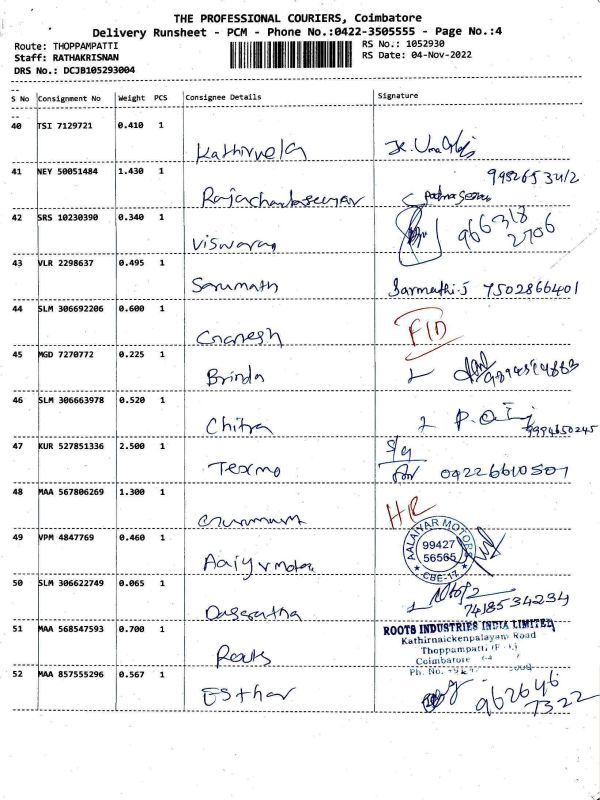 THE PROFESSIONAL COURIERS, Coimbatore
Delivery Runsheet - PCM - Phone No.:0422-3505555 - Page No.:4
Route: THOPPAMPATTI RS No.: 1052930
Staff: RATHAKRISNAN RS Date: 04-Nov-2022
DRS No.: DCJB105293004
S No Consignment No Weight PCS Consignee Details Signature
40 TSI 7129721 0.410 1 Kathirvela
41 NEY 50051484 1.430 1 Rajachandrasekar
42 SRS 10230390 0.340 1 Viswaraj 966318 2706
43 VLR 2298637 0.495 1 Sarumath Sarmathi.J 7502866401
44 SLM 306692206 0.600 1 Ganesh FID
45 MGD 7270772 0.225 1 Brinda
46 SLM 306663978 0.520 1 Chitra 9994650245
47 KUR 527851336 2.500 1 Texmo 04226610501
48 MAA 567806269 1.300 1 HR
49 VPM 4847769 0.460 1 AALAIYAR MOTOR 99427 56565 CBE-17
50 SLM 306622749 0.065 1 Dasratha 7418534234
51 MAA 568547593 0.700 1 Roots ROOTS INDUSTRIES INDIA LIMITED
Kathirnaickenpalayam Road
Thoppampatti
Coimbatore
Ph. No.
52 MAA 857555296 0.567 1 Esthar 962646 7322